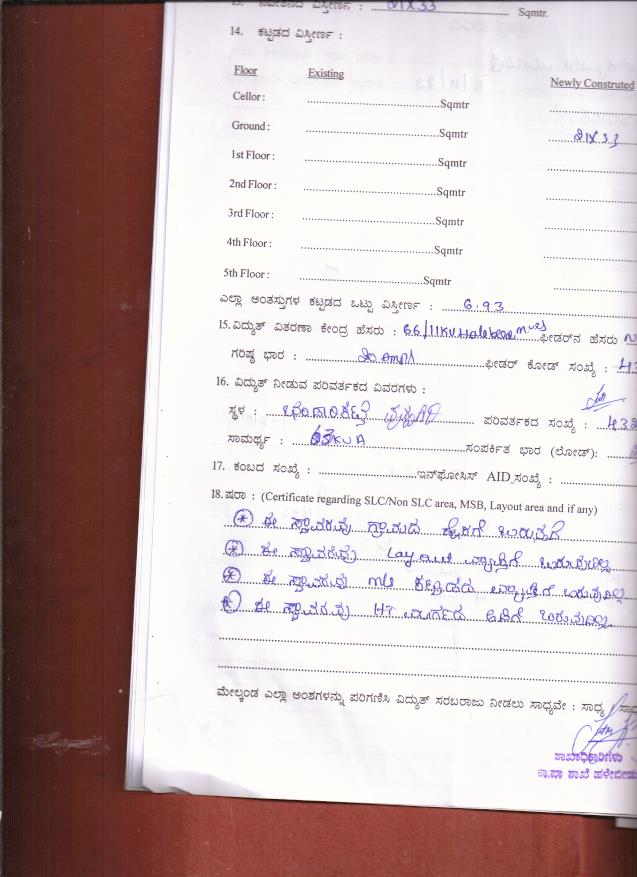 13. ನಿವೇಶನದ ವಿಸ್ತೀರ್ಣ : 21X33 Sqmtr.
14. ಕಟ್ಟಡದ ವಿಸ್ತೀರ್ಣ :
Floor Existing Newly Construted
Cellor : ........................................Sqmtr ..........................
Ground : ........................................Sqmtr 21X33
1st Floor : ........................................Sqmtr ..........................
2nd Floor : ........................................Sqmtr ..........................
3rd Floor : ........................................Sqmtr ..........................
4th Floor : ........................................Sqmtr ..........................
5th Floor : ........................................Sqmtr ..........................
ಎಲ್ಲಾ ಅಂತಸ್ತುಗಳ ಕಟ್ಟಡದ ಒಟ್ಟು ವಿಸ್ತೀರ್ಣ : 6.93
15. ವಿದ್ಯುತ್ ವಿತರಣಾ ಕೇಂದ್ರ ಹೆಸರು : 66/11KV Halebeedu muss ಫೀಡರ್‌ನ ಹೆಸರು
ಗರಿಷ್ಠ ಭಾರ : 20 Amps ಫೀಡರ್ ಕೋಡ್ ಸಂಖ್ಯೆ :
16. ವಿದ್ಯುತ್ ನೀಡುವ ಪರಿವರ್ತಕದ ವಿವರಗಳು :
ಸ್ಥಳ : ಪರಿವರ್ತಕದ ಸಂಖ್ಯೆ :
ಸಾಮರ್ಥ್ಯ : 63KVA ಸಂಪರ್ಕಿತ ಭಾರ (ಲೋಡ್):
17. ಕಂಬದ ಸಂಖ್ಯೆ : ..........................ಇನ್‌ಫೋಸಿಸ್ AID ಸಂಖ್ಯೆ : ..................
18. ಷರಾ : (Certificate regarding SLC/Non SLC area, MSB, Layout area and if any)
* ಈ ಸ್ಥಾವರವು ಗ್ರಾಮದ ಬರುತ್ತದೆ
* ಈ ಸ್ಥಾವರವು Layout ವ್ಯಾಪ್ತಿಗೆ ಬರುವುದಿಲ್ಲ
* ಈ ಸ್ಥಾವರವು ಕಟ್ಟಡದ ವ್ಯಾಪ್ತಿಗೆ ಬರುವುದಿಲ್ಲ
* ಈ ಸ್ಥಾವರವು HT ಮಾರ್ಗದ ಅಡಿಗೆ ಬರುವುದಿಲ್ಲ
ಮೇಲ್ಕಂಡ ಎಲ್ಲಾ ಅಂಶಗಳನ್ನು ಪರಿಗಣಿಸಿ ವಿದ್ಯುತ್ ಸರಬರಾಜು ನೀಡಲು ಸಾಧ್ಯವೇ : ಸಾಧ್ಯ /
ಶಾಖಾಧಿಕಾರಿಗಳು
ಕಾ.ಪಾ ಶಾಖೆ ಹಳೇಬೀಡು